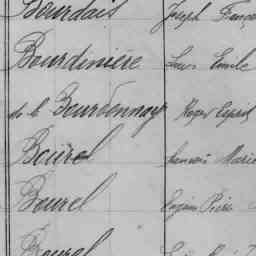 Bourdais Joseph Franço
Bourdinière Louis Emile
de la Bourdonnaye Roger Esprit
Bourel François Marie
Bourel Eugène Pierre
Bourel